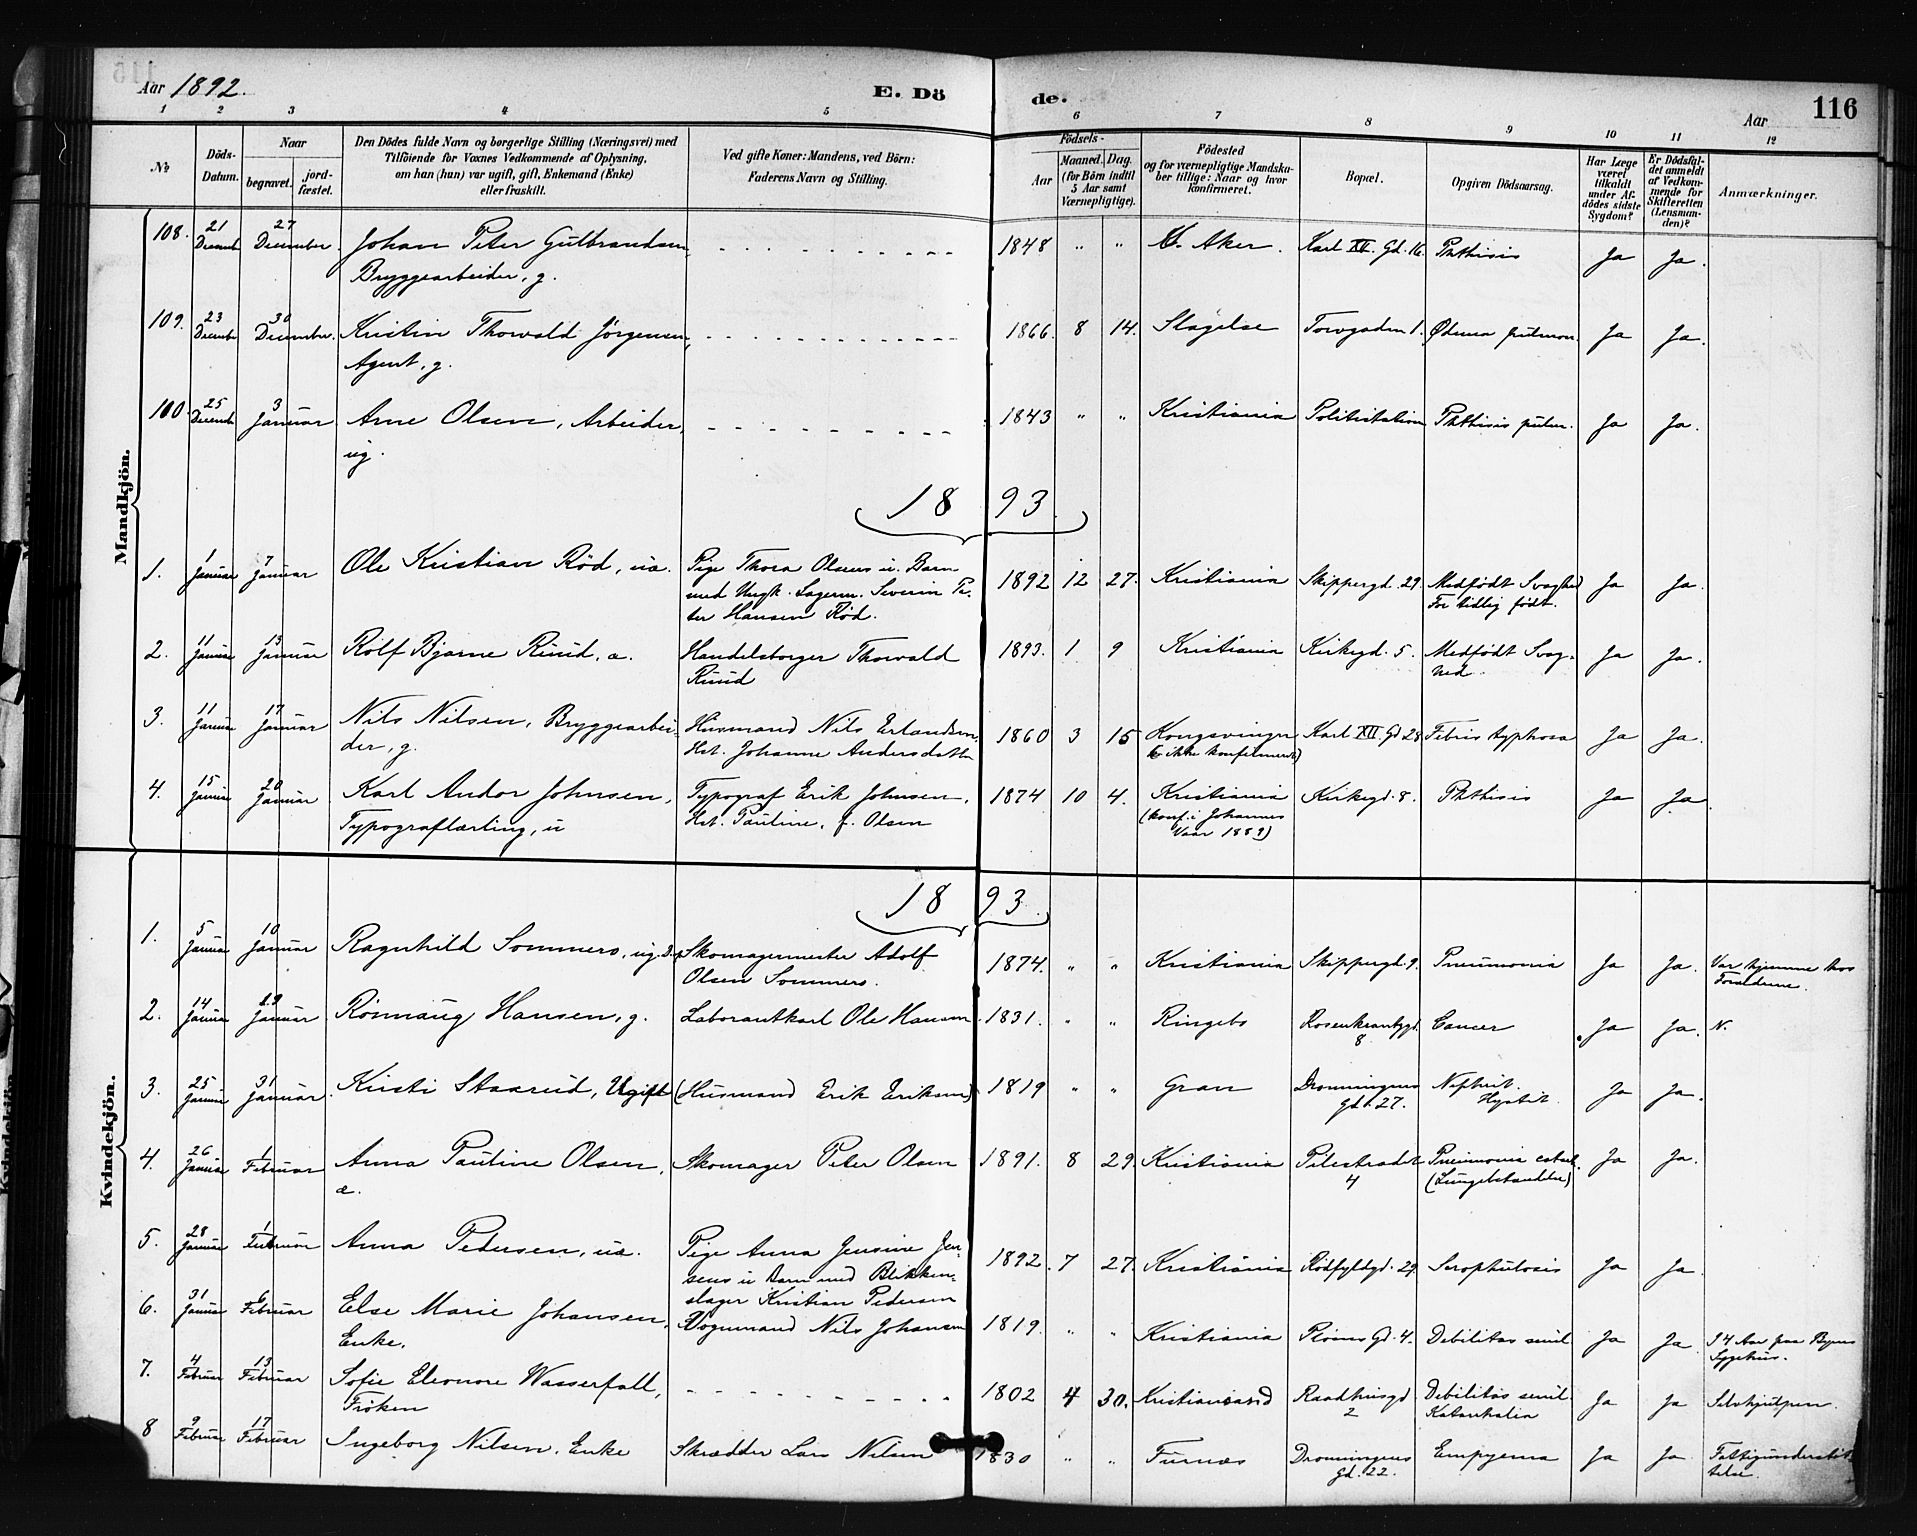 Aar 1892.
E. Döde.
Aar
116
1 2 3 4 5 6 7 8 9 10 11 12
No
Döds-Datum.
Naar
begravet.
jord-fæstet.
Den Dödes fulde Navn og borgerlige Stilling (Næringsvei) med
Tilföiende for Voxnes Vedkommende af Oplysning,
om han (hun) var ugift, gift, Enkemand (Enke)
eller fraskilt.
Ved gifte Koner: Mandens, ved Börn:
Faderens Navn og Stilling.
Födsels-
Aar
Maaned. Dag.
(for Börn indtil
5 Aar samt
Værnepligtige).
Födested
og for værnepligtige Mandska-
ber tillige: Naar og hvor
konfirmeret.
Bopæl.
Opgiven Dödsaarsag.
Har Læge
været
tilkaldt
under Af-
dödes sidste
Sygdom?
Er Dödsfal-
det anmeldt
af Vedkom-
mende for
Skifteretten
(Lensman-
den)?
Anmærkninger.
Mandkjön.
108. 21 Decemb 27 December. Johan Peter Gulbrandsen, 1848 " " V. Aker. Karl XII. Gd. 16. Phthisis Ja Ja.
Bryggearbeider, g.
109. 23 Decembr 30 December. Kristin Thorvald Jörgensen, 1866. 8 14. Slagelse Torvgaden 1. Ødema pulmon. Ja Ja.
Agent, g.
100. 25 Decemb 3 Januar Arne Olsen, Arbeider, 1843 " " Kristiania Politistation Phthisis pulm. Ja Ja.
ug.
1893.
1. 1 Januar 7 Januar Ole Kristian Röd, uæ. Pige Thora Olsens u. Barn 1892 12 27. Kristiania Skippergd. 29. Medfödt Svaghed Ja Ja.
med Ungk. Lagerm. Severin Pe- For tidlig födt.
ter Hansen Röd.
2. 11 Januar 13 Januar Rolf Bjarne Ruud, æ. Handelsborger Thorvald 1893. 1 9 Kristiania Kirkegd. 5. Medfödt Svag- Ja Ja.
Ruud hed.
3. 11 Januar 17 Januar Nils Nilsen, Bryggearbei- Husmand Nils Erlandsen, 1860 3 15 Kongsvinger Karl XII Gd 28 Febris typhosa Ja Ja.
der, g. Hst. Johanne Andersdatter ikke konfirmeret)
4. 15 Januar 20 Januar Karl Andor Johnsen, Typograf Erik Johnsen, 1874 10 4. Kristiania Kirkegd. 8. Phthisis Ja Ja
Typograflærling, u Hst. Pauline, f. Olsen (konf. i Johannes
Vaar 1889)
Kvindekjön.
1893.
1. 5 Januar 10 Januar Ragnhild Sommers, ug. Skomagermester Adolf 1874. " " Kristiania Skippergd. 9. Pneumonia Ja Ja. Var hjemme hos
Olsen Sommers. Forældrene.
2. 14 Januar 19 Januar Rönnaug Hansen, g. Laborantkarl Ole Hansen 1831. " " Ringebo Rosenkrantzgd. Cancer Ja Ja. N.
8
3. 25 Januar 31 Januar. Kirsti Staxrud, Ugift (Husmand Erik Eriksen) 1819 " " Gran Dronningens Nefrit. Ja Ja.
gd. 27.
4. 26 Januar 1 Februar Anna Pauline Olsen, Skomager Peter Olsen 1891. 8 29. Kristiania Pilestrædet Pneumonia catarh. Ja Ja.
æ. 4 (Lungebetændelse)
5. 28 Januar 1 Februar Anna Pedersen, uæ. Pige Anna Jensine Jen- 1892. 7 27. Kristiania Rödfyldgd. 29. Scrophulosis Ja Ja
sens u Barn med Blikken-
slager Kristian Pedersen
6. 31 Januar 6 Februar Else Marie Johansen, Vognmand Nils Johansen 1819. " " Kristiania Plöens Gd. 4. Debilitas senil Ja Ja. 34 Aar paa Byens
Enke. Sygehus.
7. 4 Februar 13 Februar Sofie Eleonore Wasserfall, 1802 4 30. Kristiansand Raadhusgd Debilitas senil. Ja Ja Selvhjulpen.
Fröken 2
8 9 Februar 17 Februar Ingeborg Nilsen, Enke Skrædder Lars Nilsen 1830 " " Furnæs Dronningens Empyema Ja Ja. Fattigunderstöt-
Gd. 22. telse.